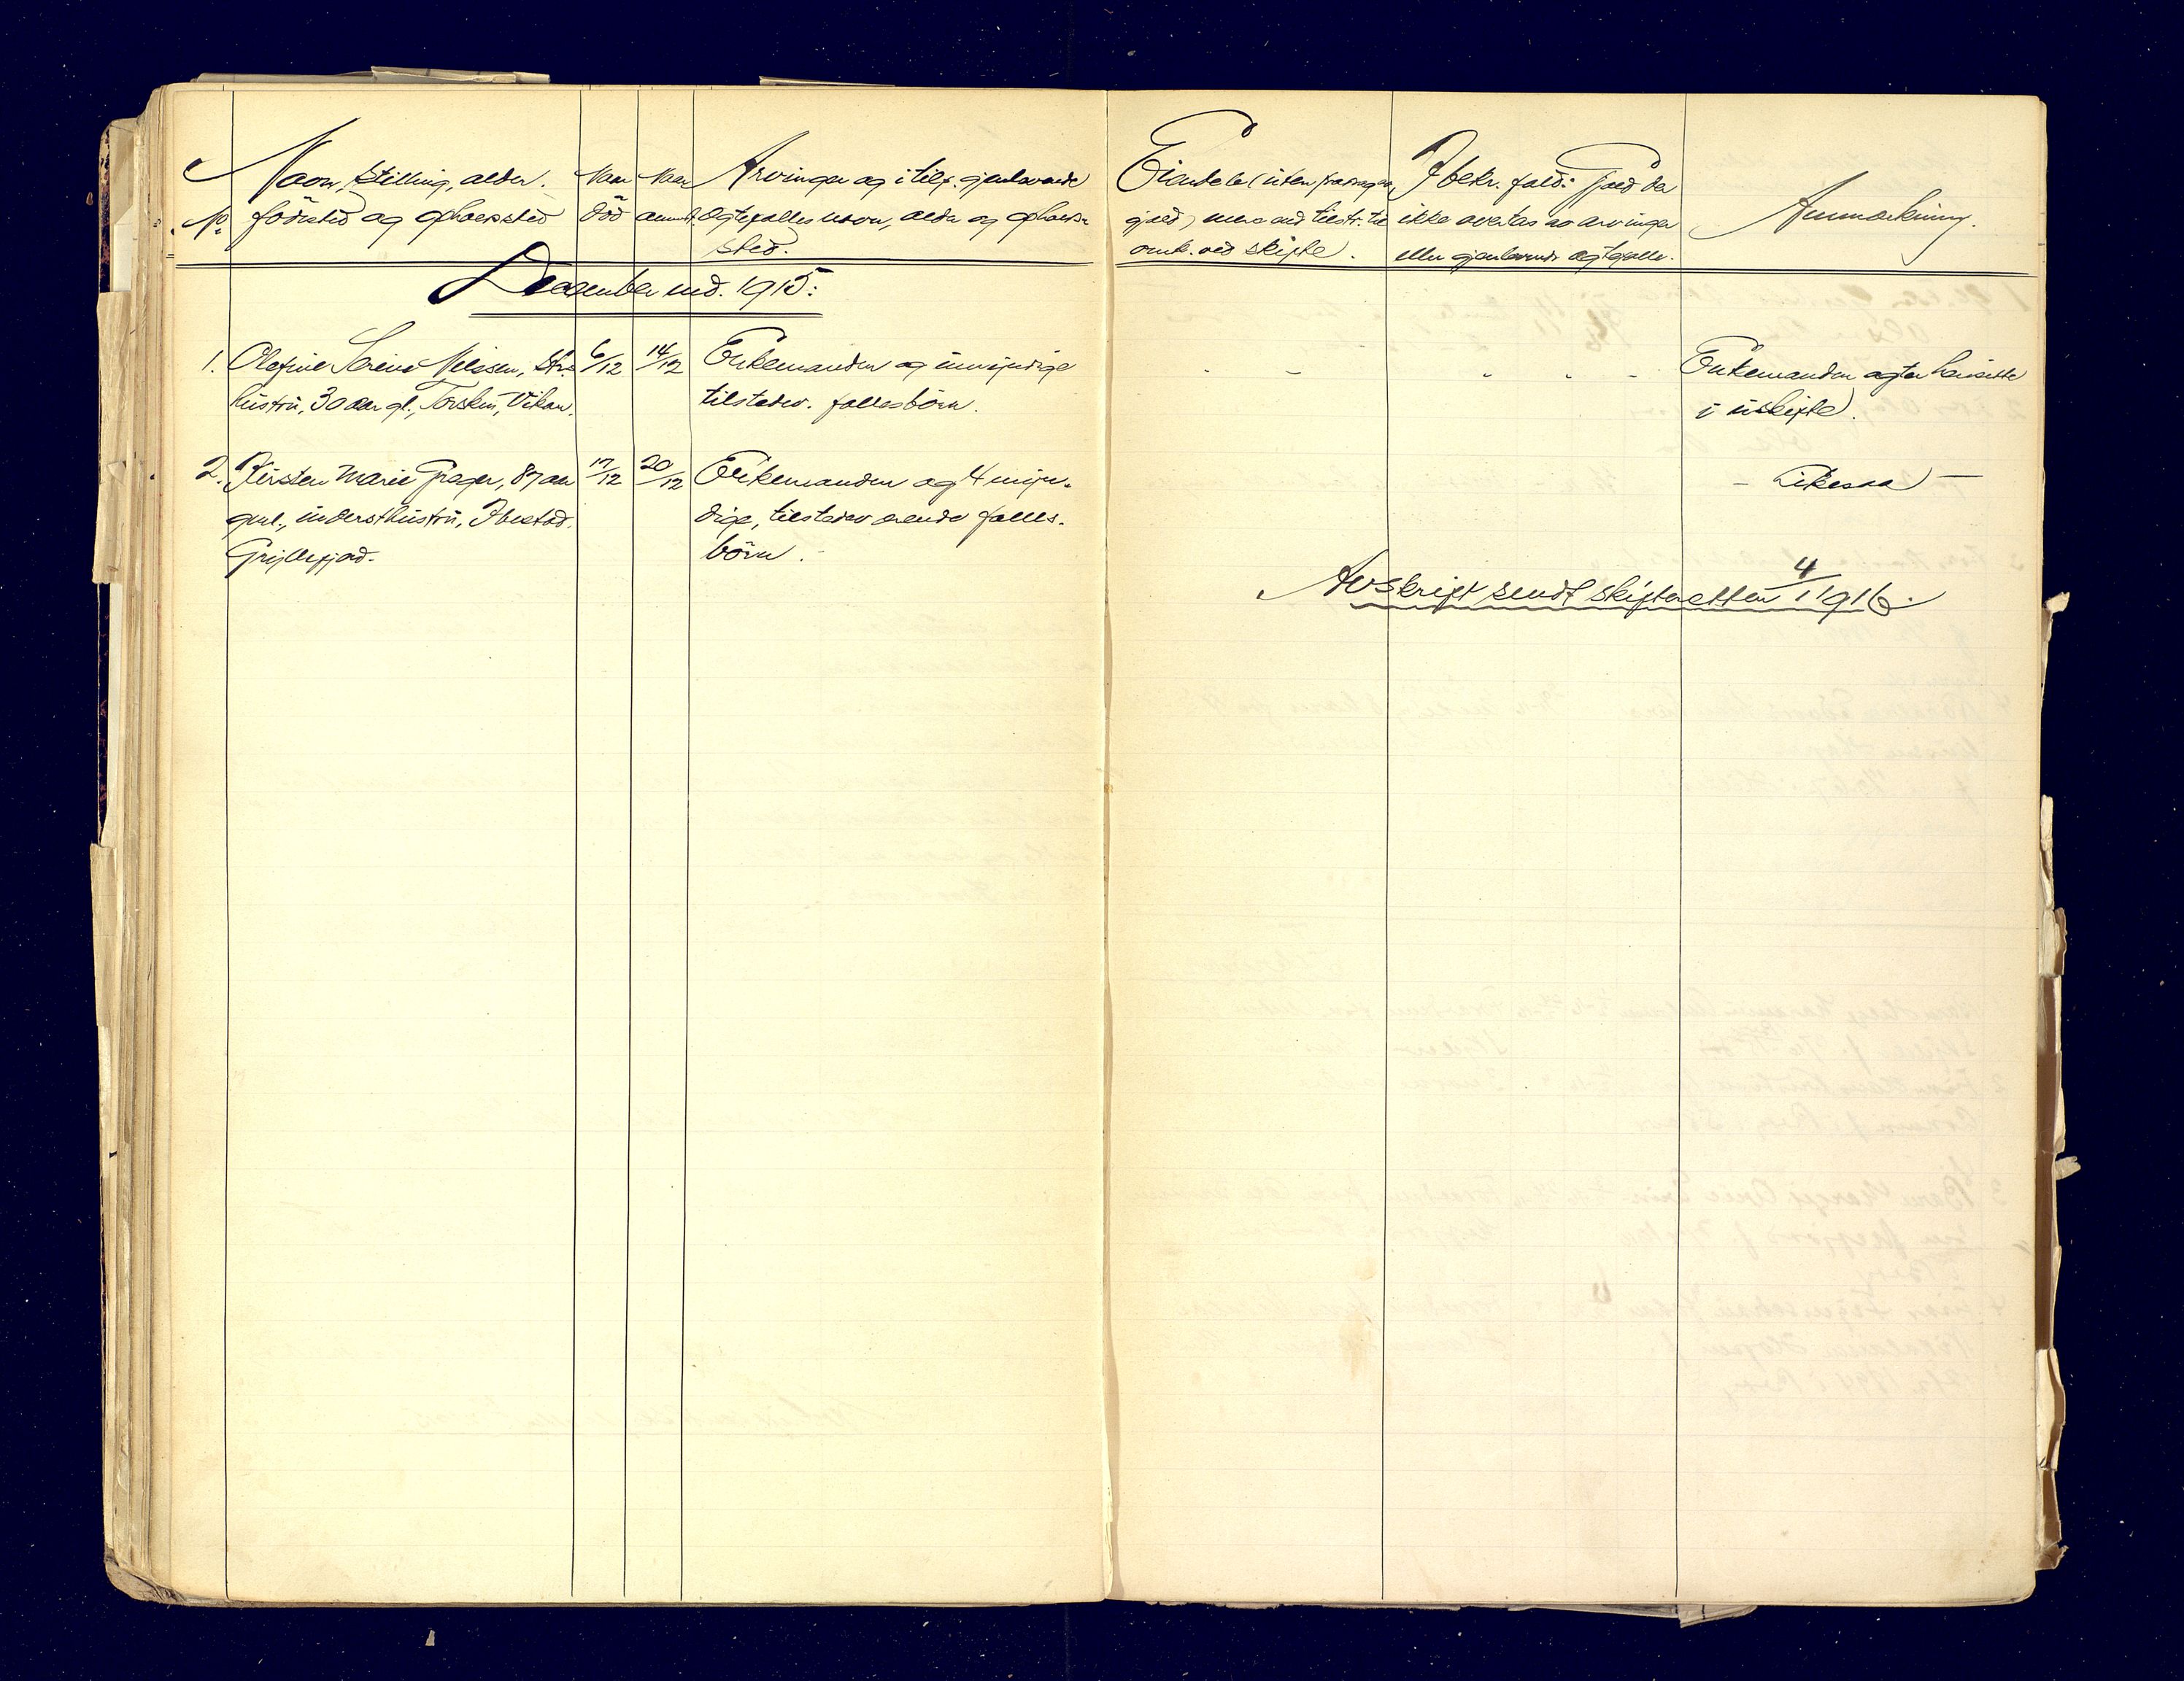 No.
Navn, stilling, alder.
födested og opholdssted
Naar
död
Naar
anm.
Arvinger og i tilf. gjenlevende
egtefælles navn, alder og opholds-
sted.
Eiendele (uten fradrag av
gjæld) mere end tilstr. til
omk. ved skifte.
I bekr. fald: Gjæld der
ikke overtas av arvinger
eller gjenlevende egtefælle.
Anmærkning.
December md. 1915:
1. Olefine Serine Nilssen, str.
hustru, 30 aar gl., Torsken, Vikan.
6/12
14/12
Enkemanden og umyndige
tilstedev. fællesbörn.
" - " " -
Enkemanden agter hensitte
i uskifte.
2. Kirsten Marie Grager, 87 aar
gml., indersthustru, Ibestad.
Gryllefjord.
17/12
20/12
Enkemanden og 4 myn-
dige, tilstedeværende fælles-
börn.
- Likesaa -
Avskrift sendt skifteretten 4/1 1916.